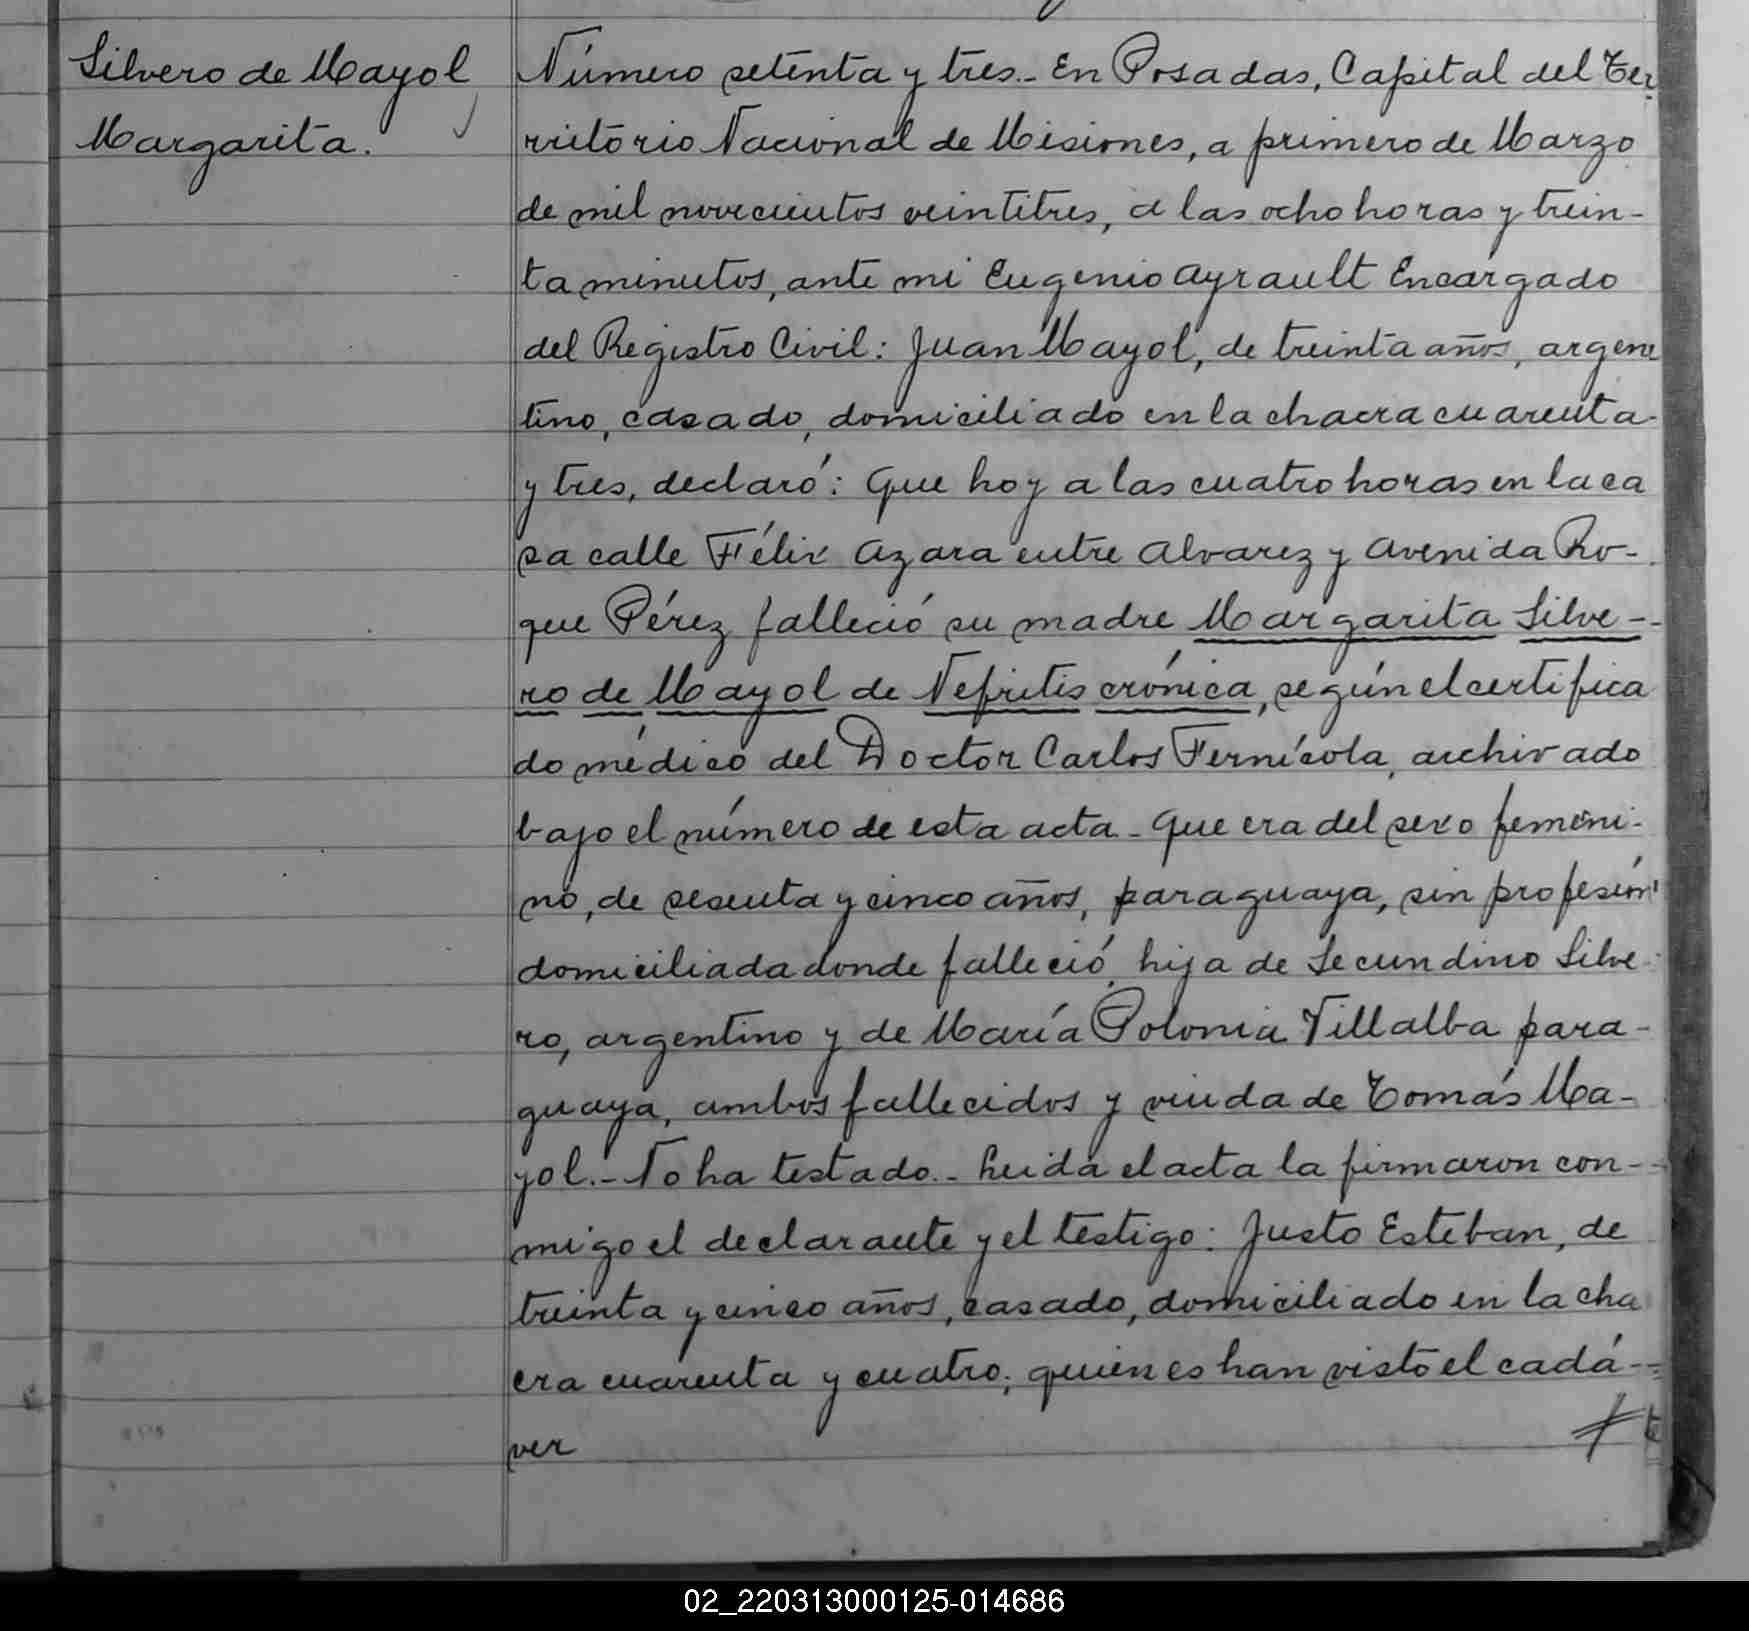 Silvero de Mayol
Margarita.
Número setenta y tres.- En Posadas, Capital del Ter
ritorio Nacional de Misiones, a primero de Marzo
de mil novecientos veintitres, a las ocho horas y trein-
ta minutos, ante mi Eugenio Ayrault Encargado
del Registro Civil: Juan Mayol, de treinta años, argen
tino, casado, domiciliado en la chacra cuarenta
y tres, declaró: Que hoy a las cuatro horas en la ca
sa calle Félix Azara entre Alvarez y Avenida Ro-
que Pérez falleció su madre Margarita Silve-
ro de Mayol de Nefritis crónica, según el certifica
do médico del Doctor Carlos Fernícola, archivado
bajo el número de esta acta - Que era del sexo femeni-
no, de sesenta y cinco años, paraguaya, sin profesión
domiciliada donde falleció, hija de Secundino Silve
ro, argentino y de María Polonia Villalba para-
guaya, ambos fallecidos y viuda de Tomás Ma-
yol.- No ha testado.- Leida el acta la firmaron con-
migo el declarante y el testigo: Justo Esteban, de
treinta y cinco años, casado, domiciliado en la cha
cra cuarenta y cuatro; quienes han visto el cadá-
ver
02_220313000125-014686